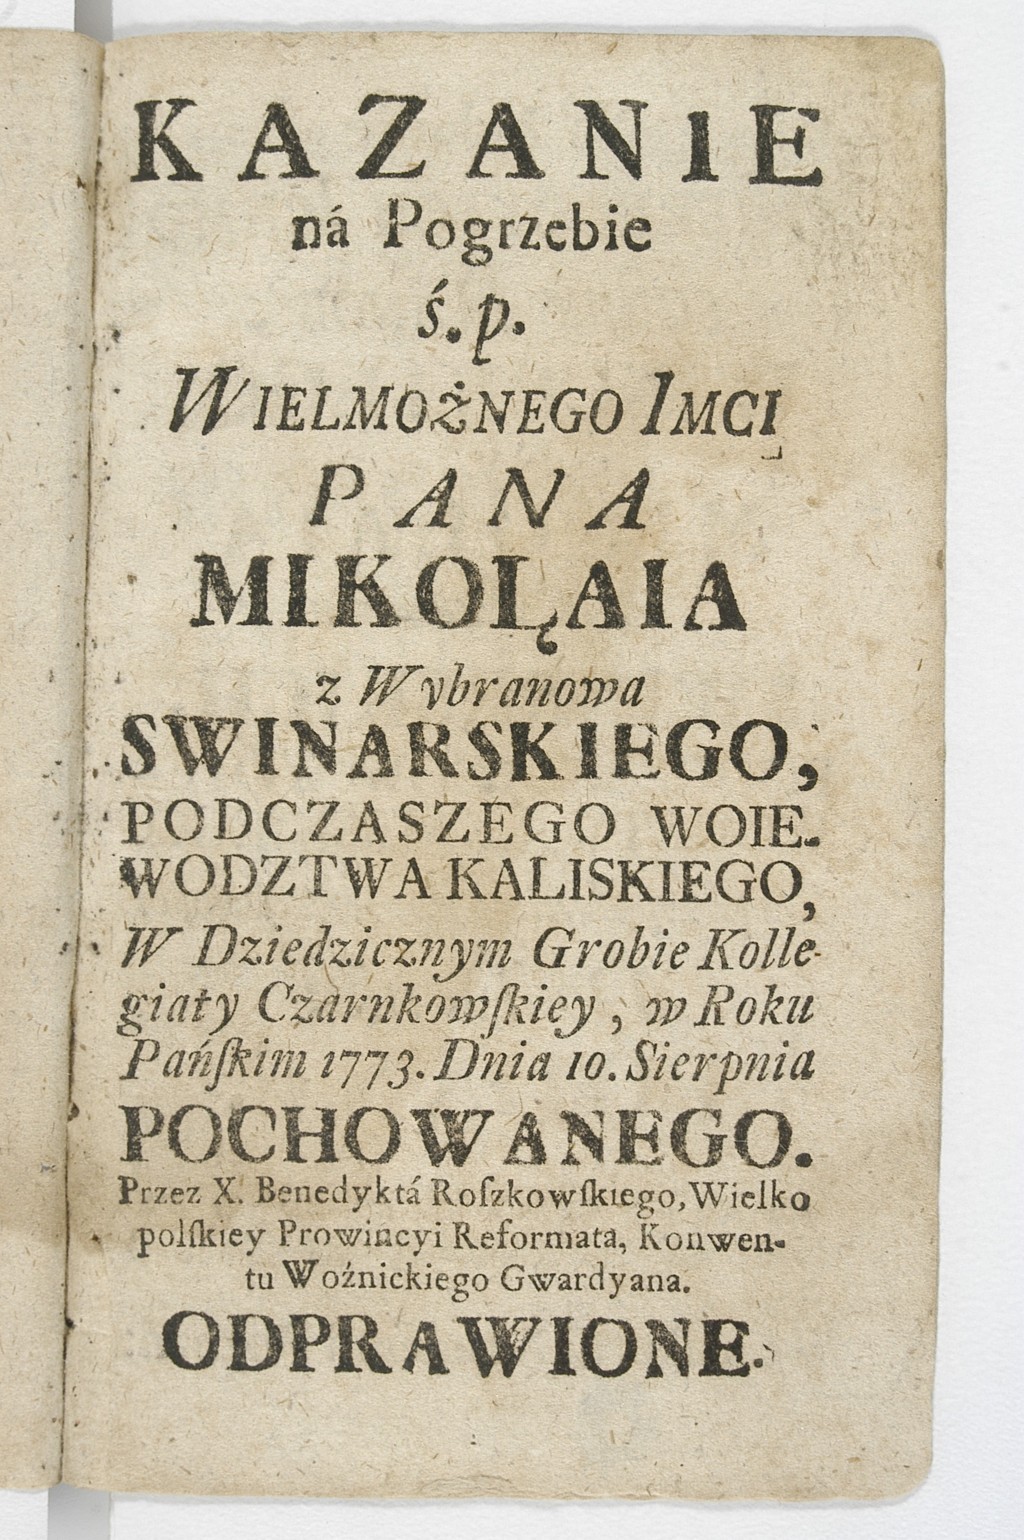 KAZANIE
ná Pogrzebie
ś.p.
WIELMOŻNEGO IMCI
PANA
MIKOŁAIA
z Wybranowa
SWINARSKIEGO,
PODCZASZEGO WOIE-
WODZTWA KALISKIEGO,
W Dziedzicznym Grobie Kolle-
giaty Czarnkowſkiey, w Roku
Pańſkim 1773. Dnia 10. Sierpnia
POCHOWANEGO.
Przez X. Benedyktá Roſzkowſkiego, Wielko
polſkiey Prowincyi Reformata, Konwen-
tu Woźnickiego Gwardyana.
ODPRAWIONE.